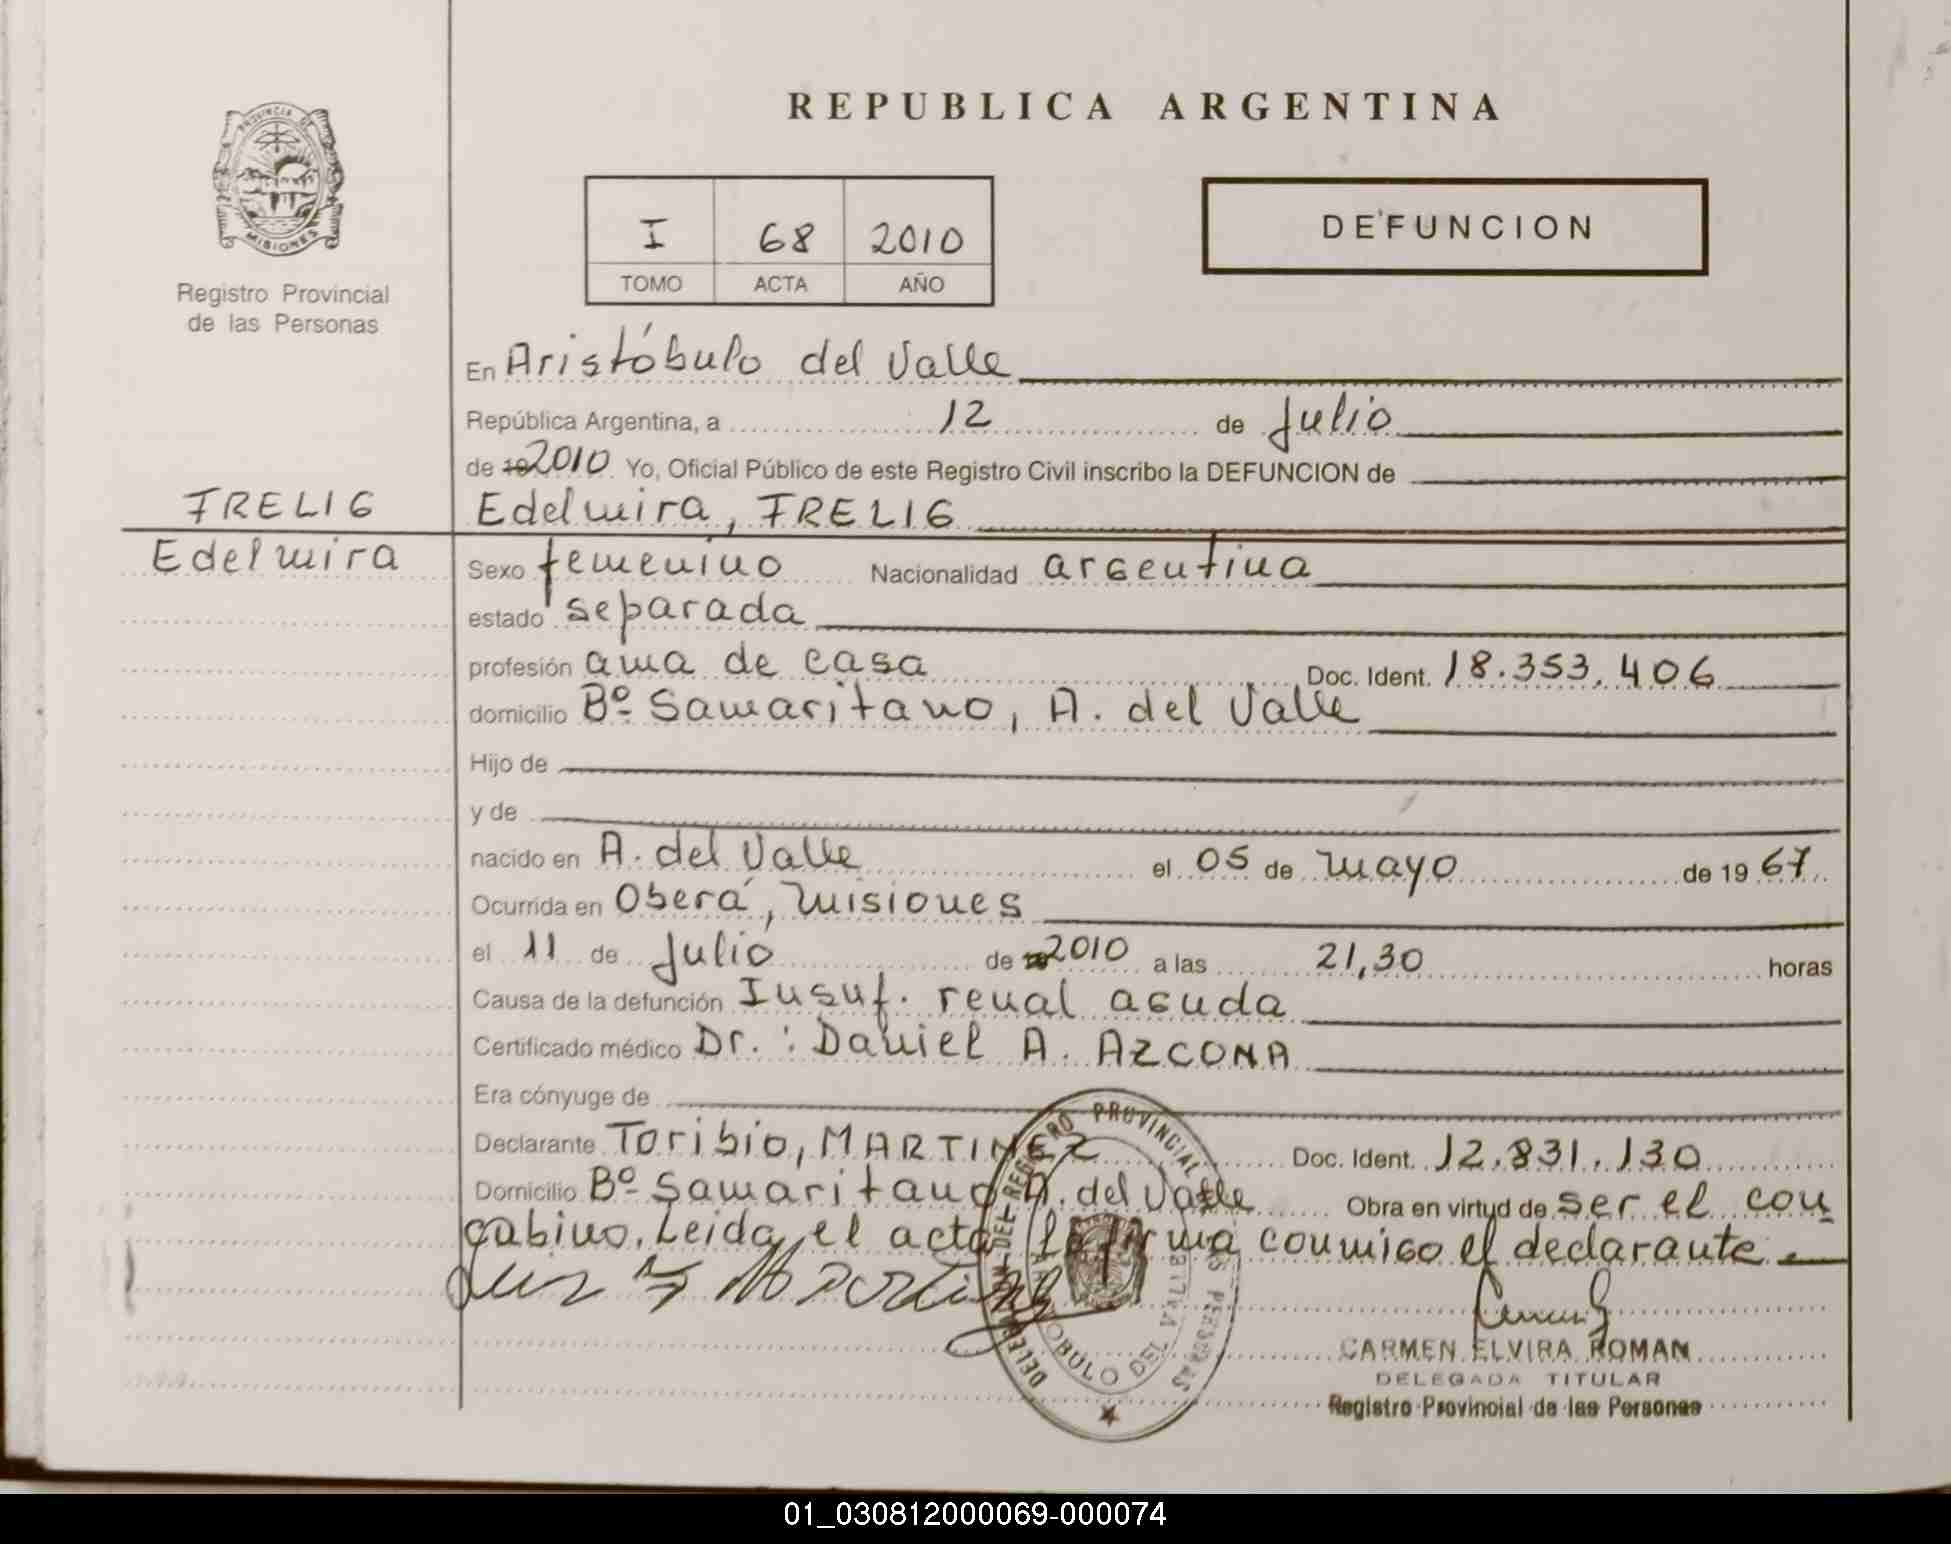 REPUBLICA ARGENTINA
PROVINCIA DE
MISIONES
Registro Provincial
de las Personas
I 68 2010
TOMO ACTA AÑO
DEFUNCION
En Aristóbulo del Valle
República Argentina, a 12 de Julio
de 19 2010 Yo, Oficial Público de este Registro Civil inscribo la DEFUNCION de
FRELIG
Edelmira
Edelmira, FRELIG
Sexo femenino Nacionalidad argentina
estado separada
profesión ama de casa Doc. Ident. 18.353.406
domicilio Bº Samaritano, A. del Valle
Hijo de
y de
nacido en A. del Valle el 05 de mayo de 19 67
Ocurrida en Oberá, Misiones
el 11 de Julio de 2010 a las 21,30 horas
Causa de la defunción Insuf. renal aguda
Certificado médico Dr.: Daniel A. AZCONA
Era cónyuge de
Declarante Toribio, MARTINEZ Doc. Ident. 12.831.130
Domicilio Bº Samaritano A. del Valle Obra en virtud de ser el con
cubino. Leida el acta la firma conmigo el declarante
DELEG DEL REGISTRO PROVINCIAL PERSONAS
OBULO DEL VALLE
CARMEN ELVIRA ROMAN
DELEGADA TITULAR
Registro Provincial de las Personas
01_030812000069-000074